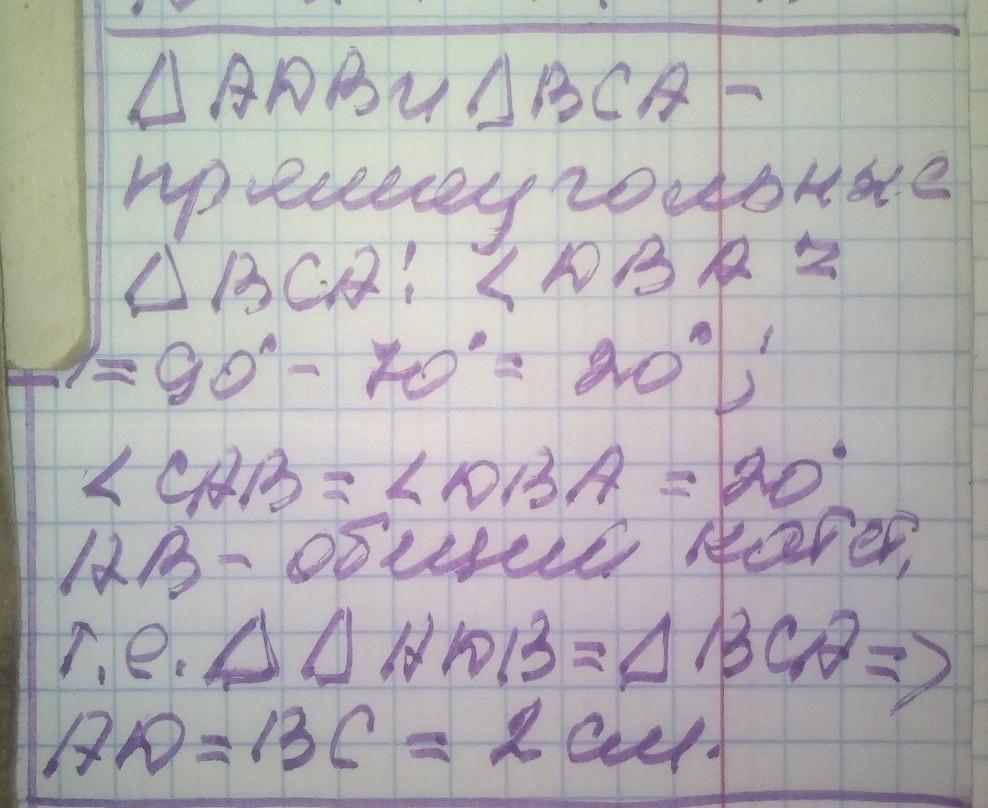 Δ ADB и Δ BCA -
прямоугольные
Δ BCA: < DBA =
= 90° - 70° = 20°;
< CAB = < DBA = 20°
AB - общий катет,
т.е. Δ Δ ADB = Δ BCA =>
AD = BC = 2 см.